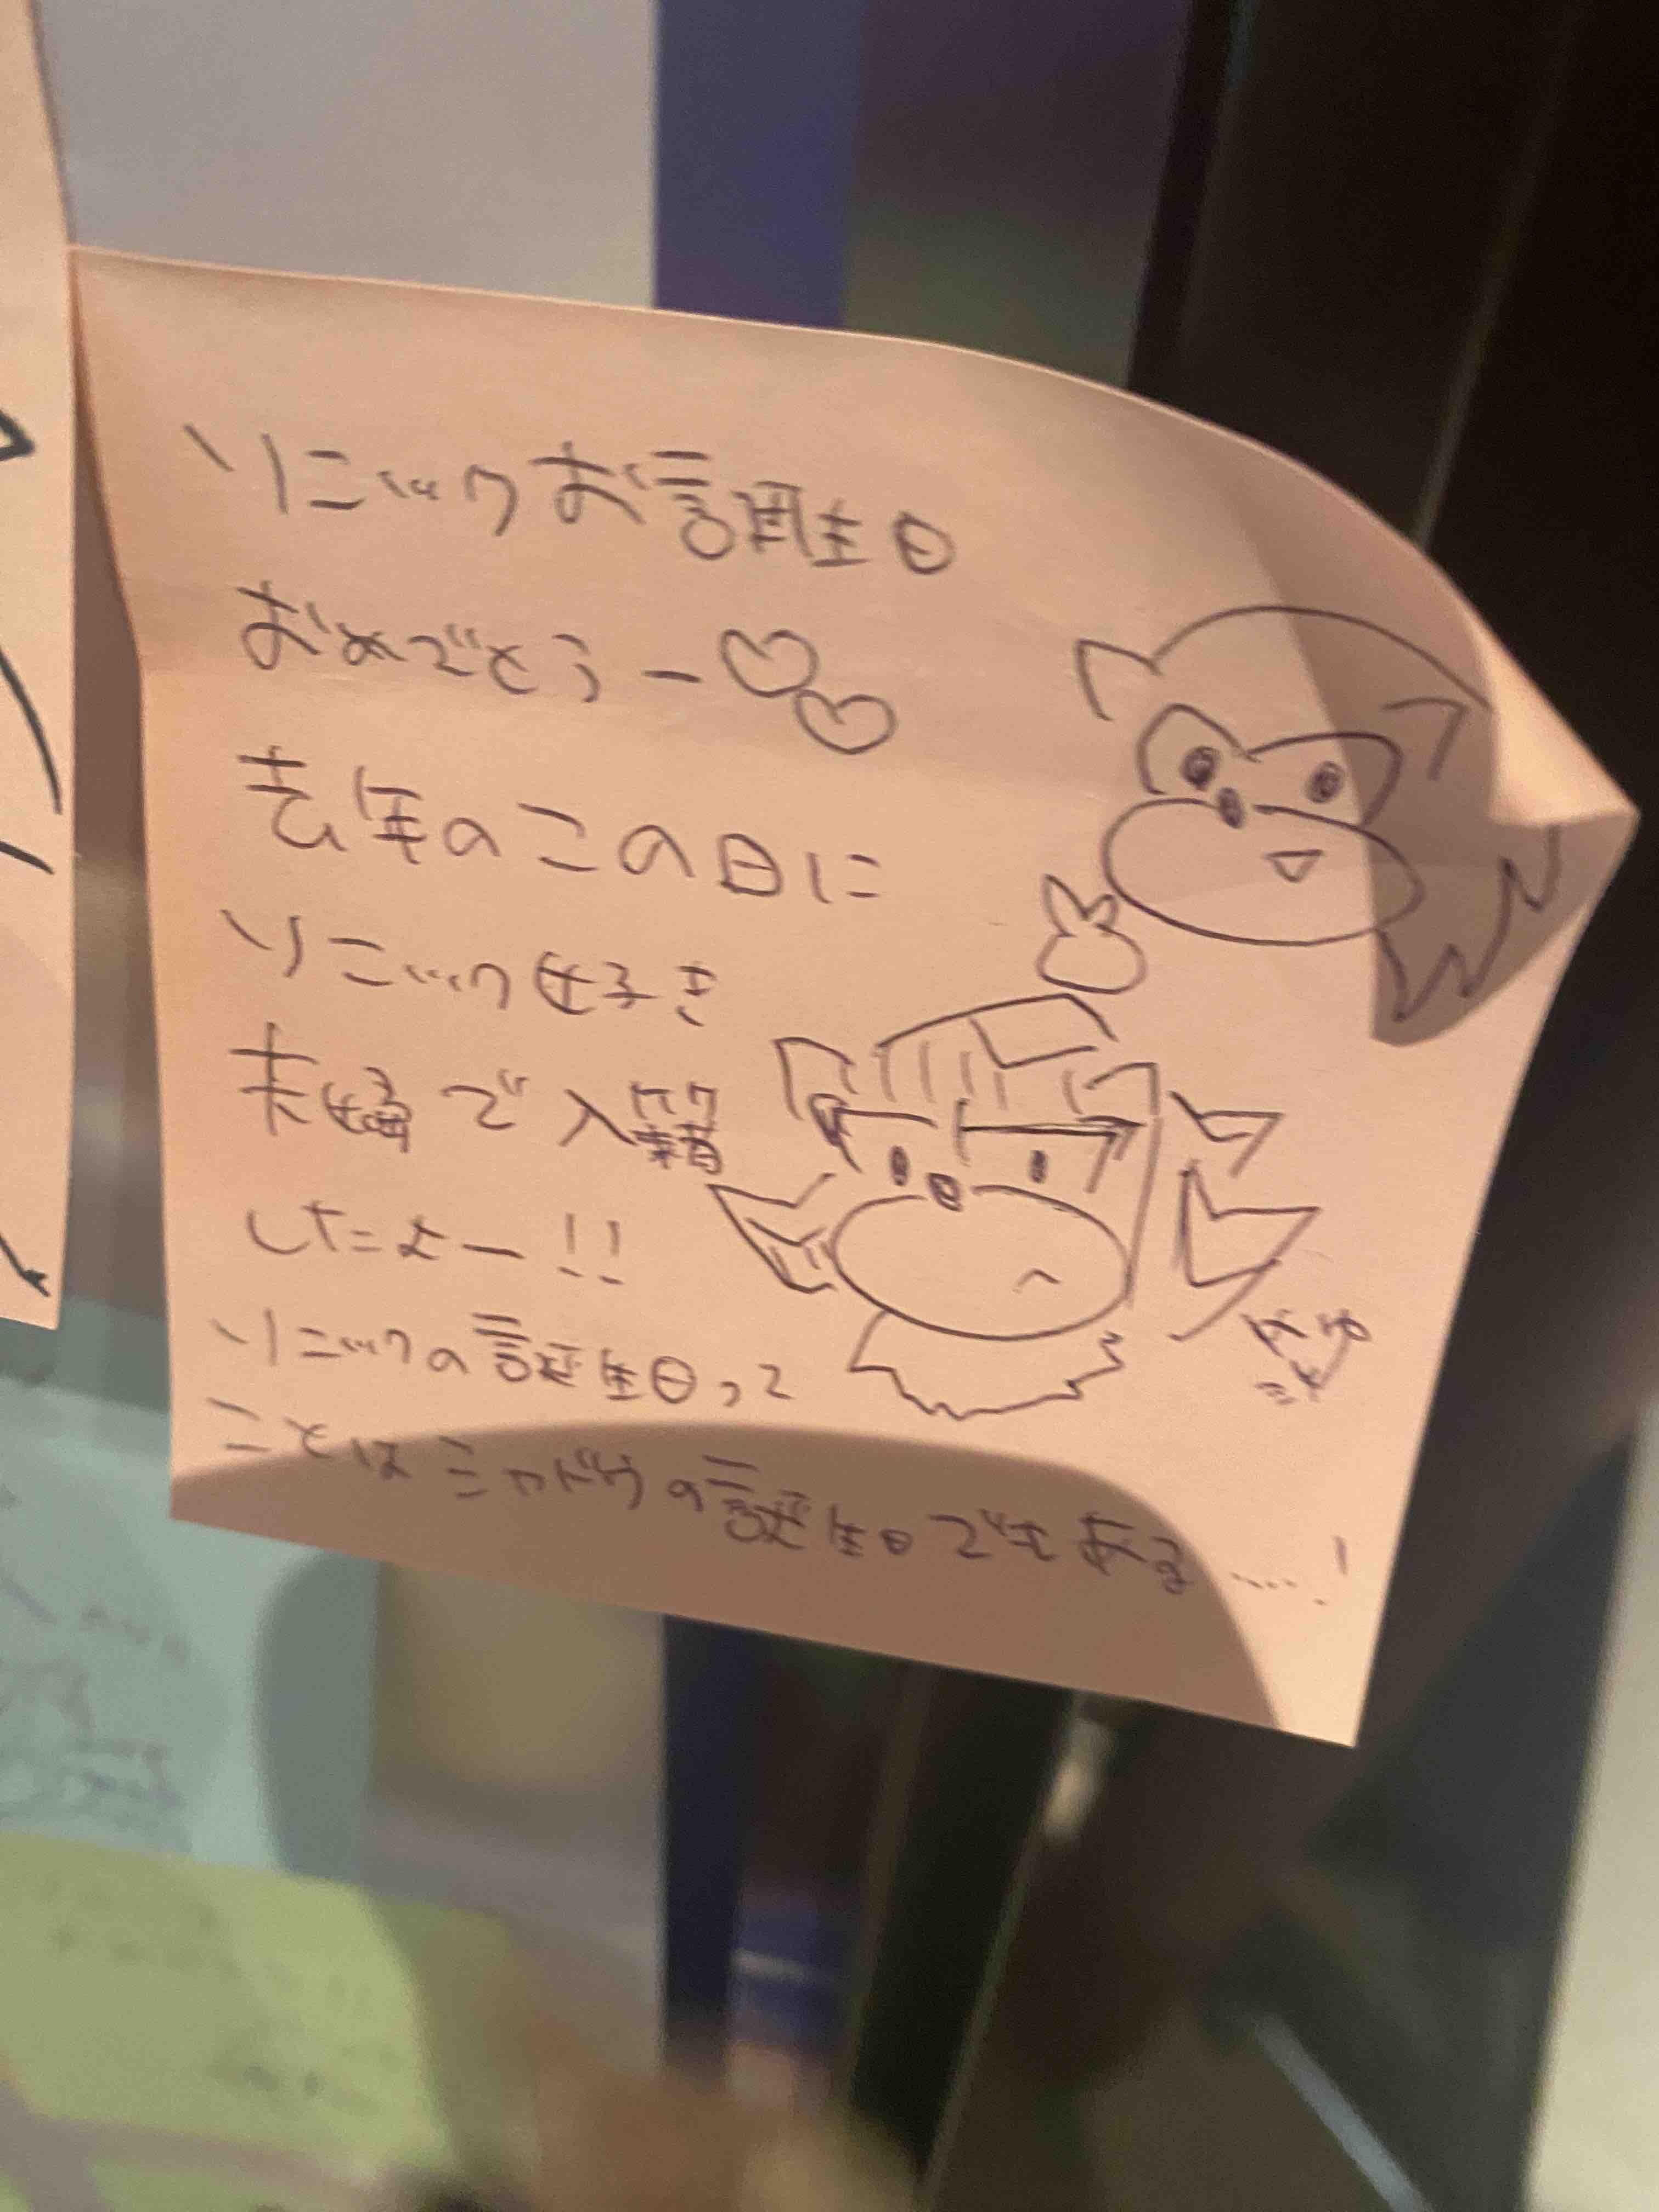 ソニックお誕生日
おめでとうー♡♡
去年のこの日に
ソニック好き
夫婦で入籍
したよー!!
ソニックの誕生日って
ことはシャドウの誕生日でもある……!